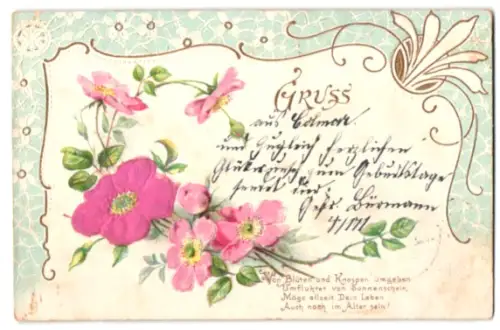 GRUSS
aus Colmar
und zugleich herzlichen
Glückwunsch zum Geburtstage
sendet
Bürmann
Von Blüten und Knospen umgeben
Umfluktet von Sonnenschein,
Möge allzeit Dein Leben
Auch noch im Alter sein!